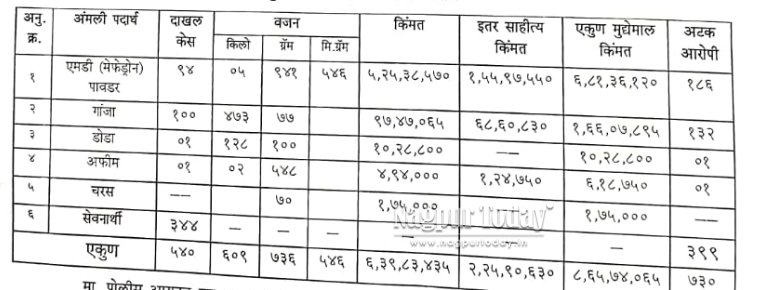 अनु. क्र. | अंमली पदार्थ | दाखल केस | वजन | किंमत | इतर साहीत्य किंमत | एकुण मुद्येमाल किंमत | अटक आरोपी
किलो | ग्रॅम | मि.ग्रॅम
१ | एमडी (मेफेड्रोन) पावडर | ९४ | ०५ | ९४१ | ५४६ | ५,२५,३८,५७० | १,५५,९७,५५० | ६,८१,३६,१२० | १८६
२ | गांजा | १०० | ४७३ | ७७ | | ९७,४७,०६५ | ६८,६०,८३० | १,६६,०७,८९५ | १३२
३ | डोडा | ०१ | १२८ | १०० | | १०,२८,८०० | —— | १०,२८,८०० | ०१
४ | अफीम | ०१ | ०२ | ५४८ | | ४,९४,००० | १,२४,७५० | ६,१८,७५० | ०१
५ | चरस | —— | | ७० | | १,७५,००० | | १,७५,००० | ——
६ | सेवनार्थी | ३४४ | — | — | — | — | | — | ३९९
एकुण | ५४० | ६०९ | ७३६ | ५४६ | ६,३९,८३,४३५ | २,२५,९०,६३० | ८,६५,७४,०६५ | ७३०
Nagpur Today
www.nagpurtoday.in
मा. पोलीस आयुक्त